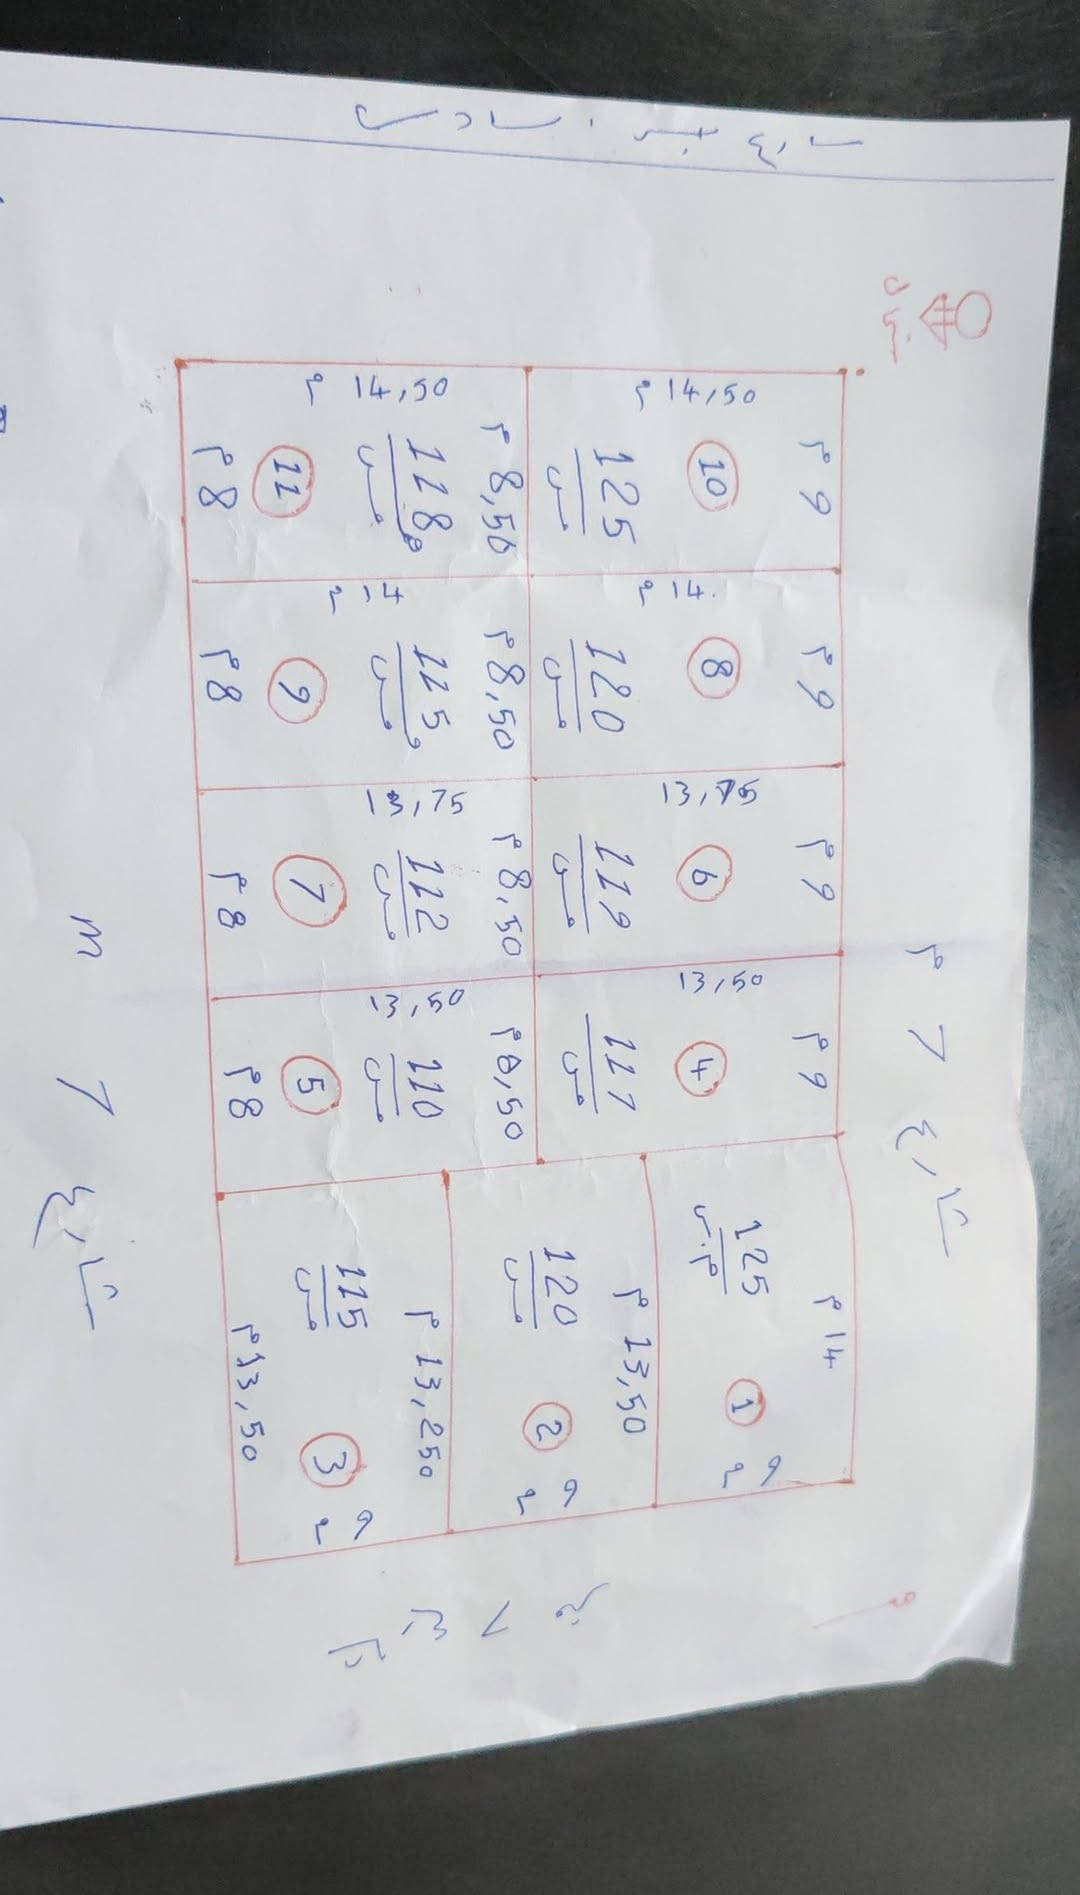 14,50 م
14,50 م
م 9
10
125
م س
م 8,50
118
م س
11
م 8
14 م
14 م
م 9
8
120
م س
م 8,50
115
م س
9
م 8
13,75
13,75
م 9
6
119
م س
م 8,50
112
م س
7
م 8
13,50
13,50
م 9
4
117
م س
م 8,50
110
م س
5
م 8
م 7 شارع
م 14
125
م.س
1
9 م
م 13,50
120
م س
2
9 م
م 13,250
115
م س
3
9 م
م 13,50
m 7 شارع
شارع 7